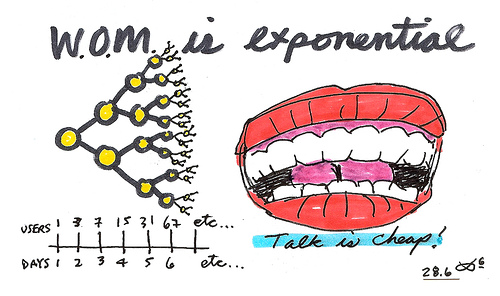 W.O.M. is exponential
USERS 1 3 7 15 31 67 etc...
DAYS 1 2 3 4 5 6 etc...
Talk is cheap!
28.6